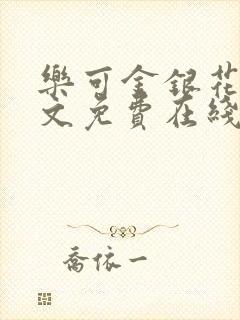 樂可金銀花
文免費在綫
喬依一